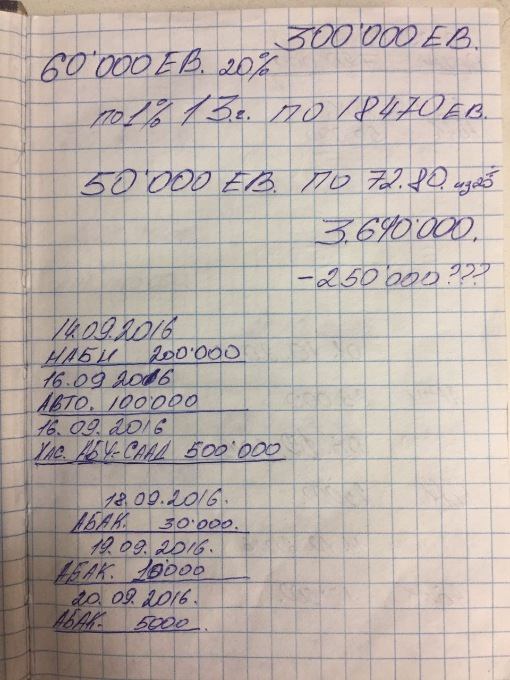 300'000 ЕВ.
60'000 ЕВ. 20%
по 1% 13 г. по 18470 ЕВ.
50'000 ЕВ. по 72.80.
3.640'000.
-250'000 ???
14.09.2016
НАБИ 200'000
16.09 2016
АВТО. 100'000
16.09.2016
ХАС. АБУ-СААД 500'000
18.09.2016.
АБАК. 30'000.
19.09.2016.
АБАК. 10'000
20.09.2016.
АБАК. 5000.